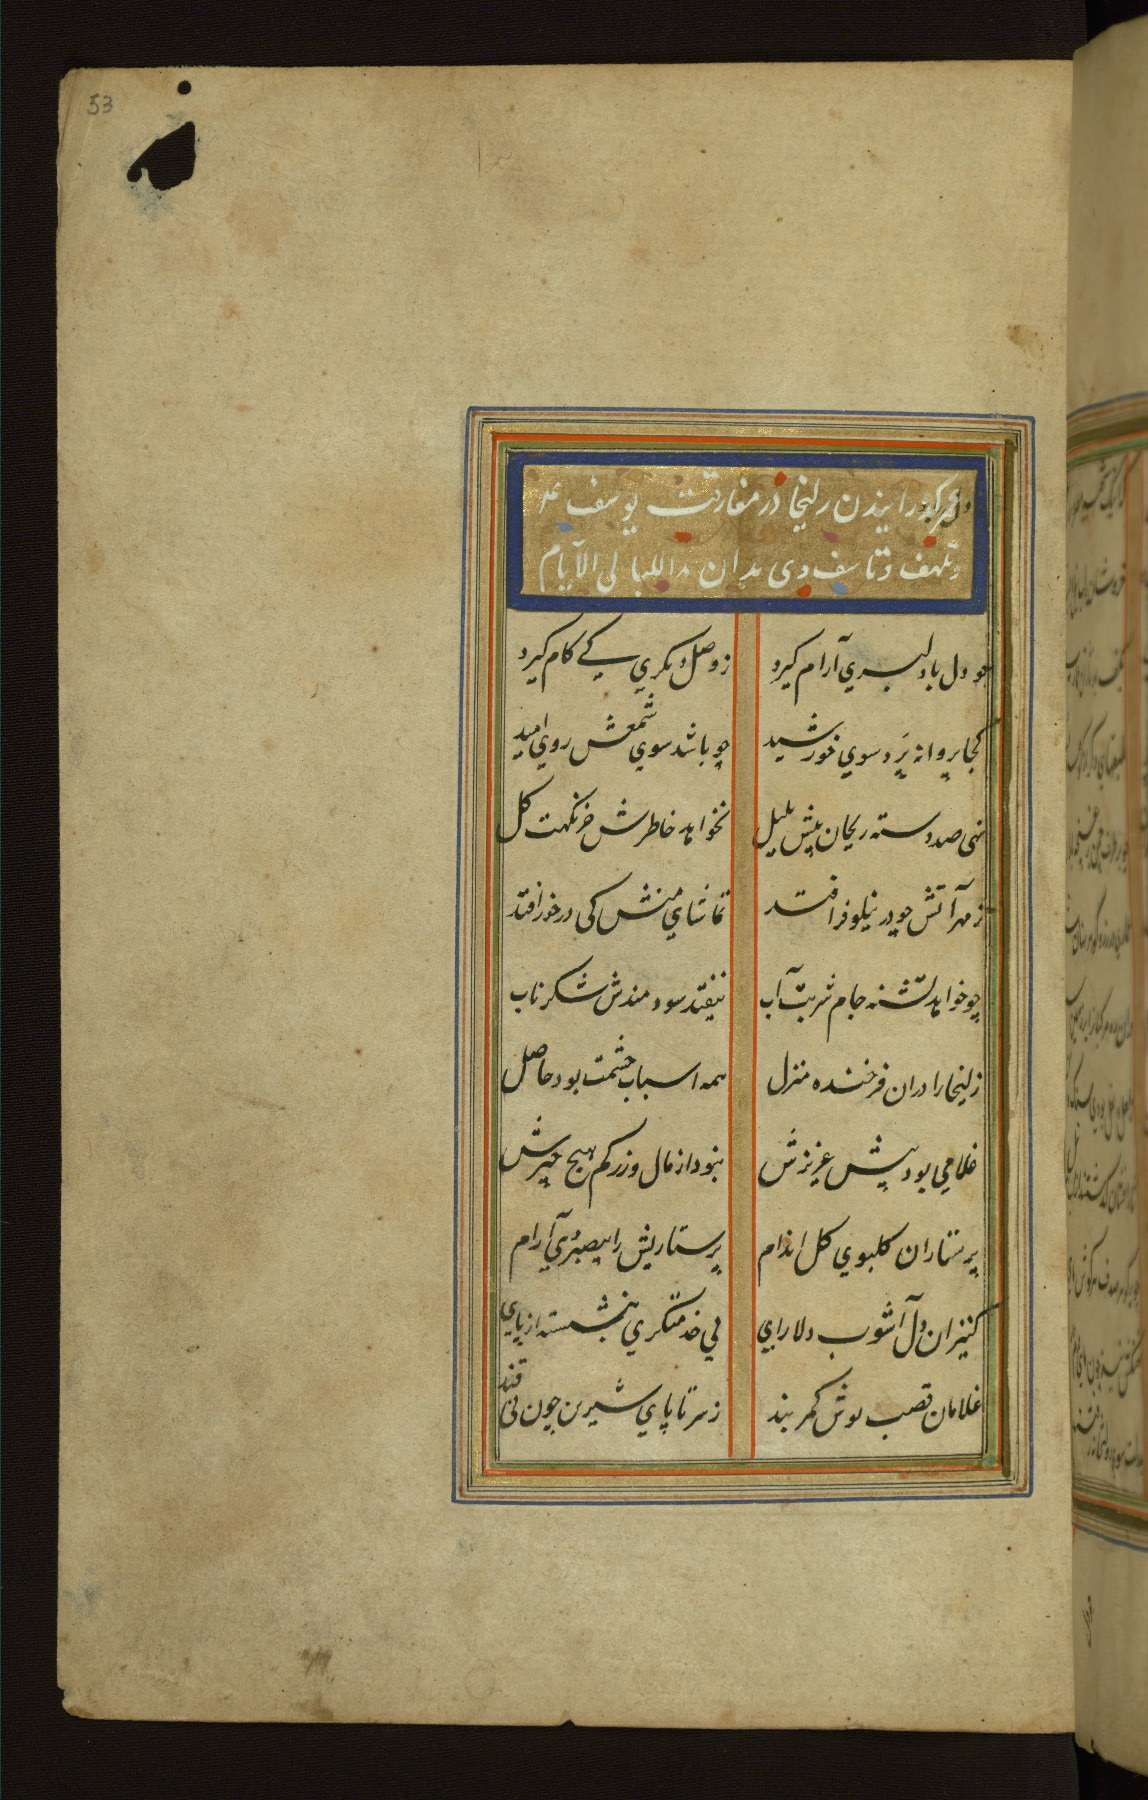 53
عمر گذرانیدن زلیخا در مفارقت یوسف علیه
وتلهف وتاسف وی بدان مد اللیالی الآیام
چو دل با دلبری آرام گیرد زوصل دیگری کی کام گیرد
کجا پروانه پرد سوی خورشید چو باشد سوی شمعش روی امید
نهی صد دسته ریحان پیش بلبل نخواهد خاطرش جز نکهت گل
ز مهر آتش چو در نیلوفر افتد تماشای مهش کی در خور افتد
چو خواهد تشنه جام شربت آب نیفتد سودمندش شکر ناب
زلیخا را دران فرخنده منزل همه اسباب حشمت بود حاصل
غلامی بود پیش عزیزش نبود از مال وزر کم هیچ چیزش
پرستاران گلبوی گل اندام پرستاریش را بیصبر و آرام
کنیزان دل آشوب دلارای پی خدمتگری ننشسته از پای
غلامان قصب پوش کمر بند ز سر تا پای شیرین چون نی قند